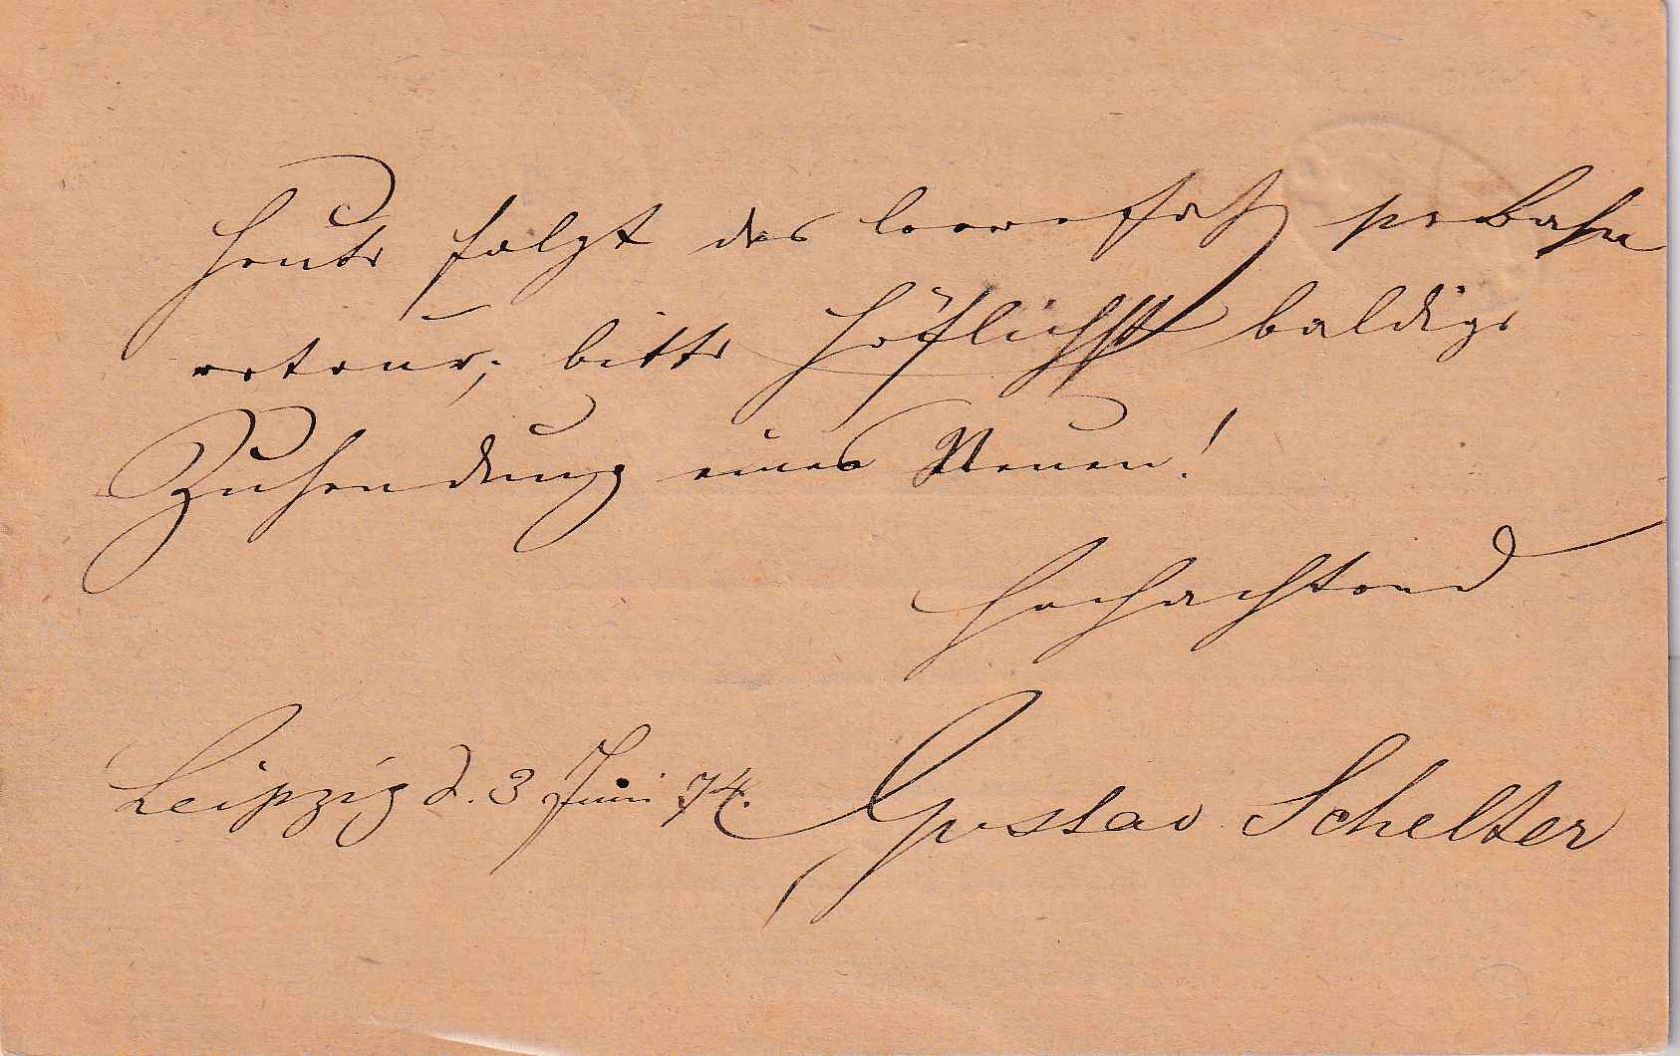 Heute folgt das leere Faß pr Bahn
retour; bitte höflichst baldige
Zusendung eines Neuen!
Hochachtend
Leipzig d. 3 Juni 74. Gustav Schelter